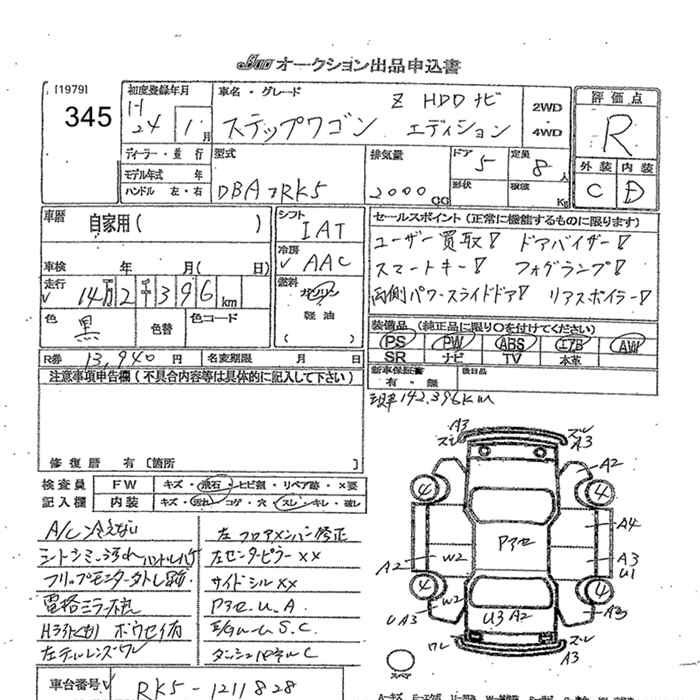 JU オークション出品申込書
[1979]
345
初度登録年月
H 24年 1月
車名・グレード
Z HDDナビ
ステップワゴン エディション
2WD
・
4WD
評価点
R
外装 内装
C D
ディーラー・並行
モデル年式 年
ハンドル 左・右
型式
DBA RK5
排気量
2000 CC
ドア 5
形状
定員 8人
積載 Kg
車暦 自家用( )
シフト IAT
冷房 AAC
セールスポイント(正常に機能するものに限ります)
ユーザー買取! ドアバイザー!
スマートキー! フォグランプ!
両側パワースライドドア! リアスポイラー!
車検 年 月( 日)
走行 14万2千396km
燃料 ガソリン
軽油
( )
色 黒 色替 色コード
装備品(純正品に限り○を付けてください)
PS PW ABS エアB AW
SR ナビ TV 本革
R券 13,940円 名変期限 月 日
新車保証書 有・無 後日品
現車142,396km
注意事項申告欄(不具合内容等は具体的に記入して下さい)
修復歴 有 [箇所 ]
検査員 FW キズ・飛石・ヒビ割・リペア跡・×要
記入欄 内装 キズ・汚れ・コゲ・穴・スレ・キレ・破レ
A/C冷えない
シートシミ汚れ ハンドルハゲ
フリップモニター外し跡
電格ミラー不良
H引くもり ボウセイ有
左テールレンズワレ
左フロアメンバー修正
左センターピラー××
サイドシル××
Pアセ U.A
E/Gルーム S.C
ダッシュパネルC
A3
スレ
スレ
A3
A2
4
4
A4
Pアセ
A2
W2
A3
U1
4
4
W2
UA3
U3 A2
A3
ワレ
スレ
A3
スペア
車台番号 RK5-1211828